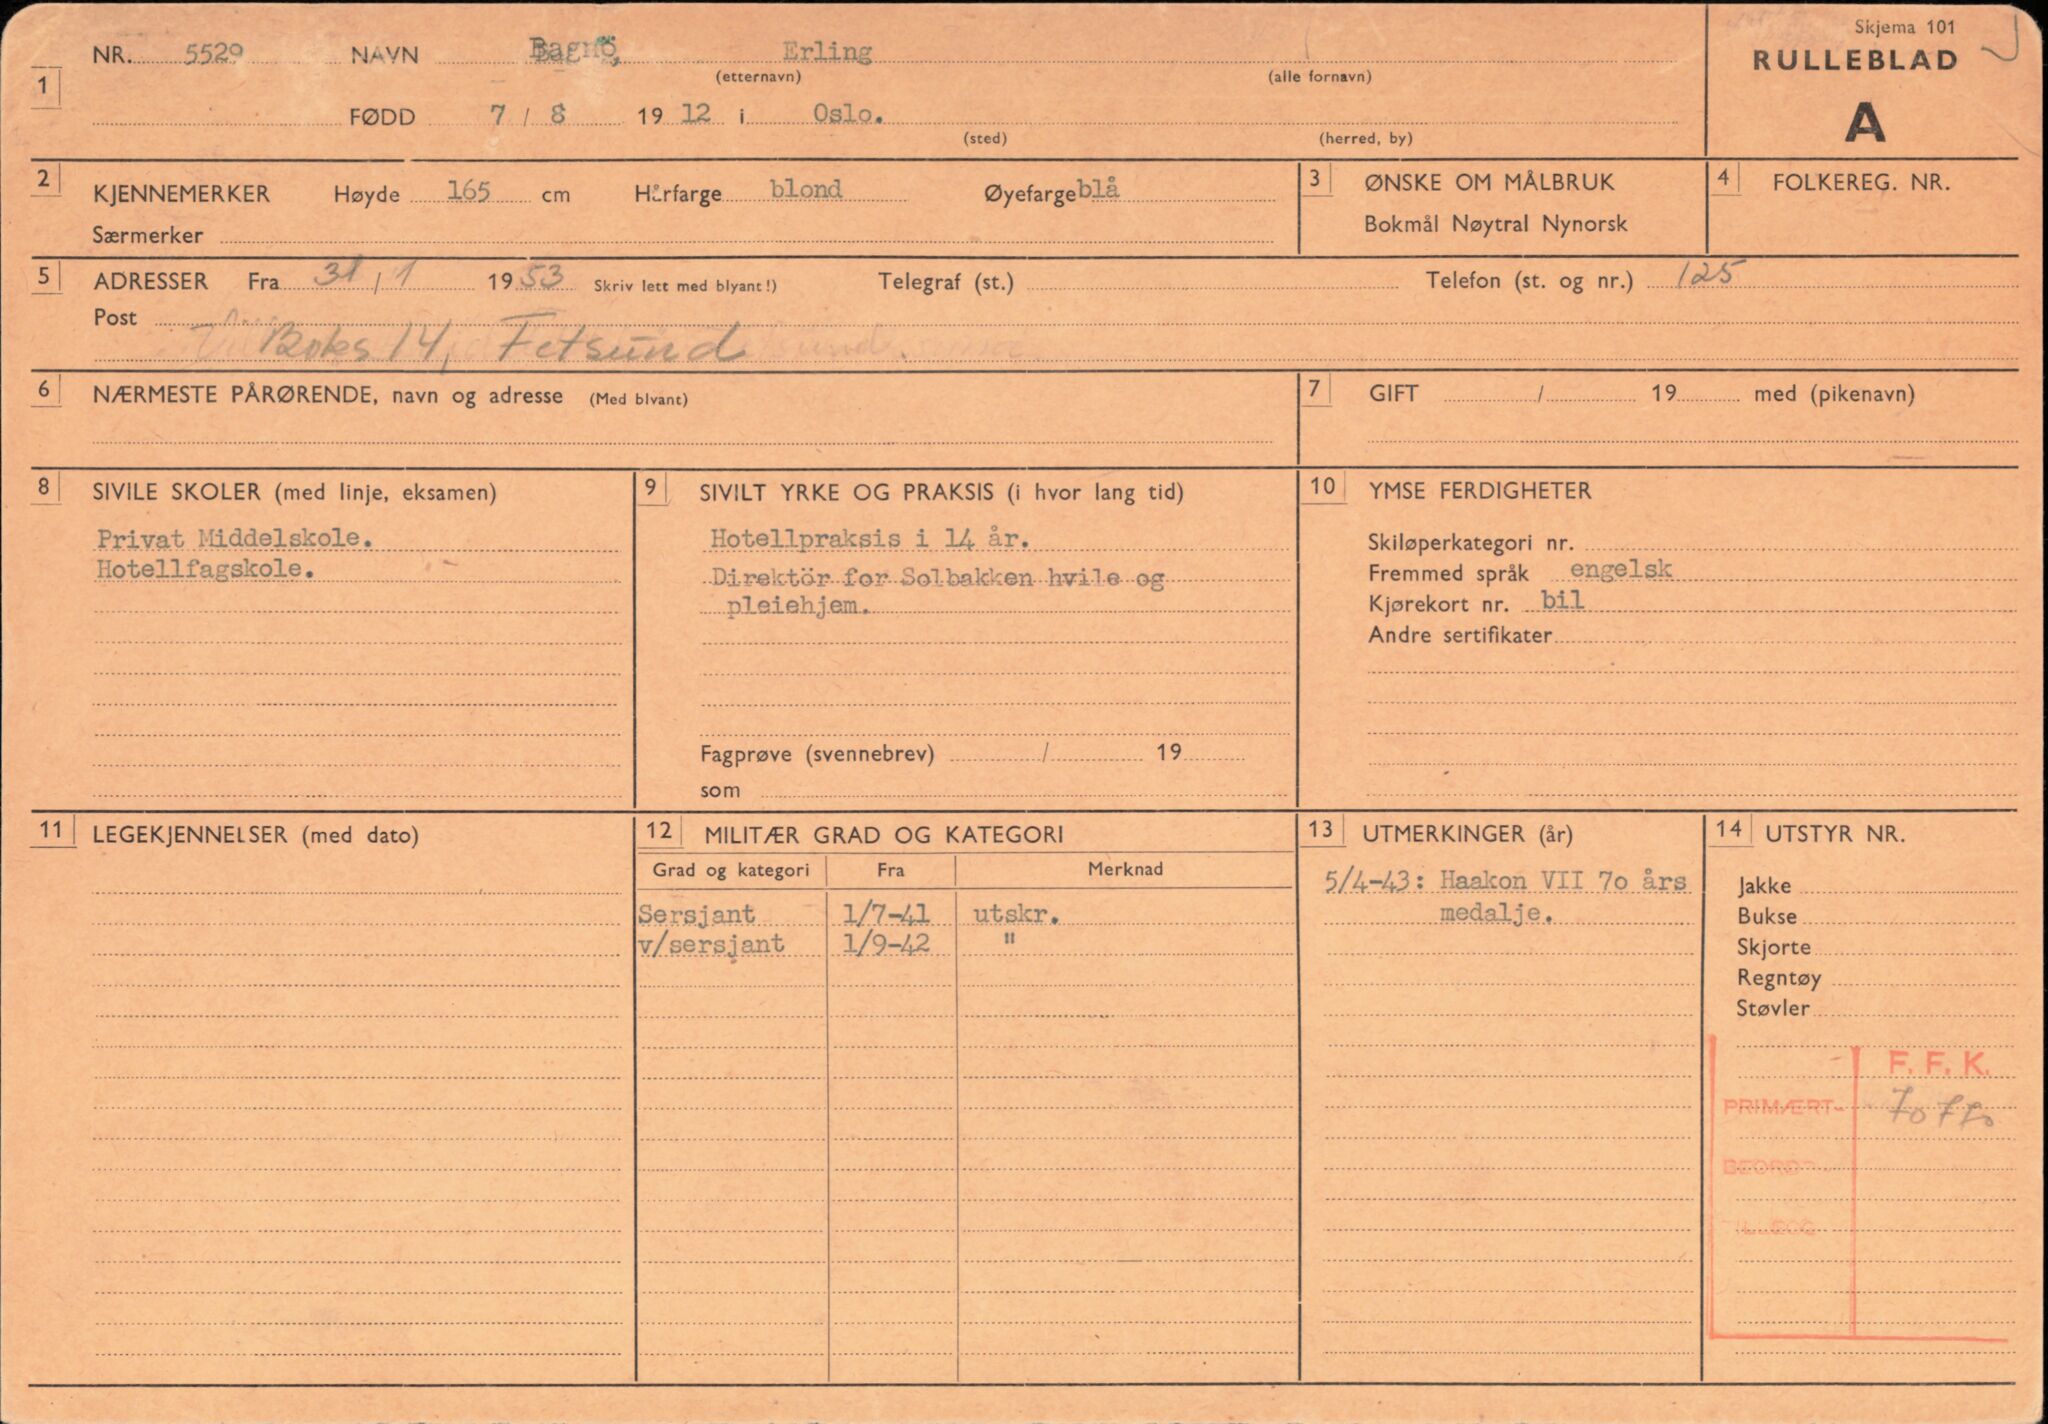 Skjema 101
RULLEBLAD
A
1 NR. 5529 NAVN Bagnö, Erling
(etternavn) (alle fornavn)
FØDD 7 / 8 1912 i Oslo.
(sted) (herred, by)
2 KJENNEMERKER Høyde 165 cm Hårfarge blond Øyefarge blå
Særmerker
3 ØNSKE OM MÅLBRUK
Bokmål Nøytral Nynorsk
4 FOLKEREG. NR.
5 ADRESSER Fra 31 / 1 1953 Skriv lett med blyant!) Telegraf (st.) Telefon (st. og nr.) 125
Post
Boks 14, Fetsund
6 NÆRMESTE PÅRØRENDE, navn og adresse (Med blyant)
7 GIFT / 19 med (pikenavn)
8 SIVILE SKOLER (med linje, eksamen)
Privat Middelskole.
Hotellfagskole.
9 SIVILT YRKE OG PRAKSIS (i hvor lang tid)
Hotellpraksis i 14 år.
Direktör for Solbakken hvile og
pleiehjem.
Fagprøve (svennebrev) / 19
som
10 YMSE FERDIGHETER
Skiløperkategori nr.
Fremmed språk engelsk
Kjørekort nr. bil
Andre sertifikater
11 LEGEKJENNELSER (med dato)
12 MILITÆR GRAD OG KATEGORI
Grad og kategori Fra Merknad
Sersjant 1/7-41 utskr.
v/sersjant 1/9-42 "
13 UTMERKINGER (år)
5/4-43: Haakon VII 7o års
medalje.
14 UTSTYR NR.
Jakke
Bukse
Skjorte
Regntøy
Støvler
F. F. K.
PRIMÆRT-
BEORD